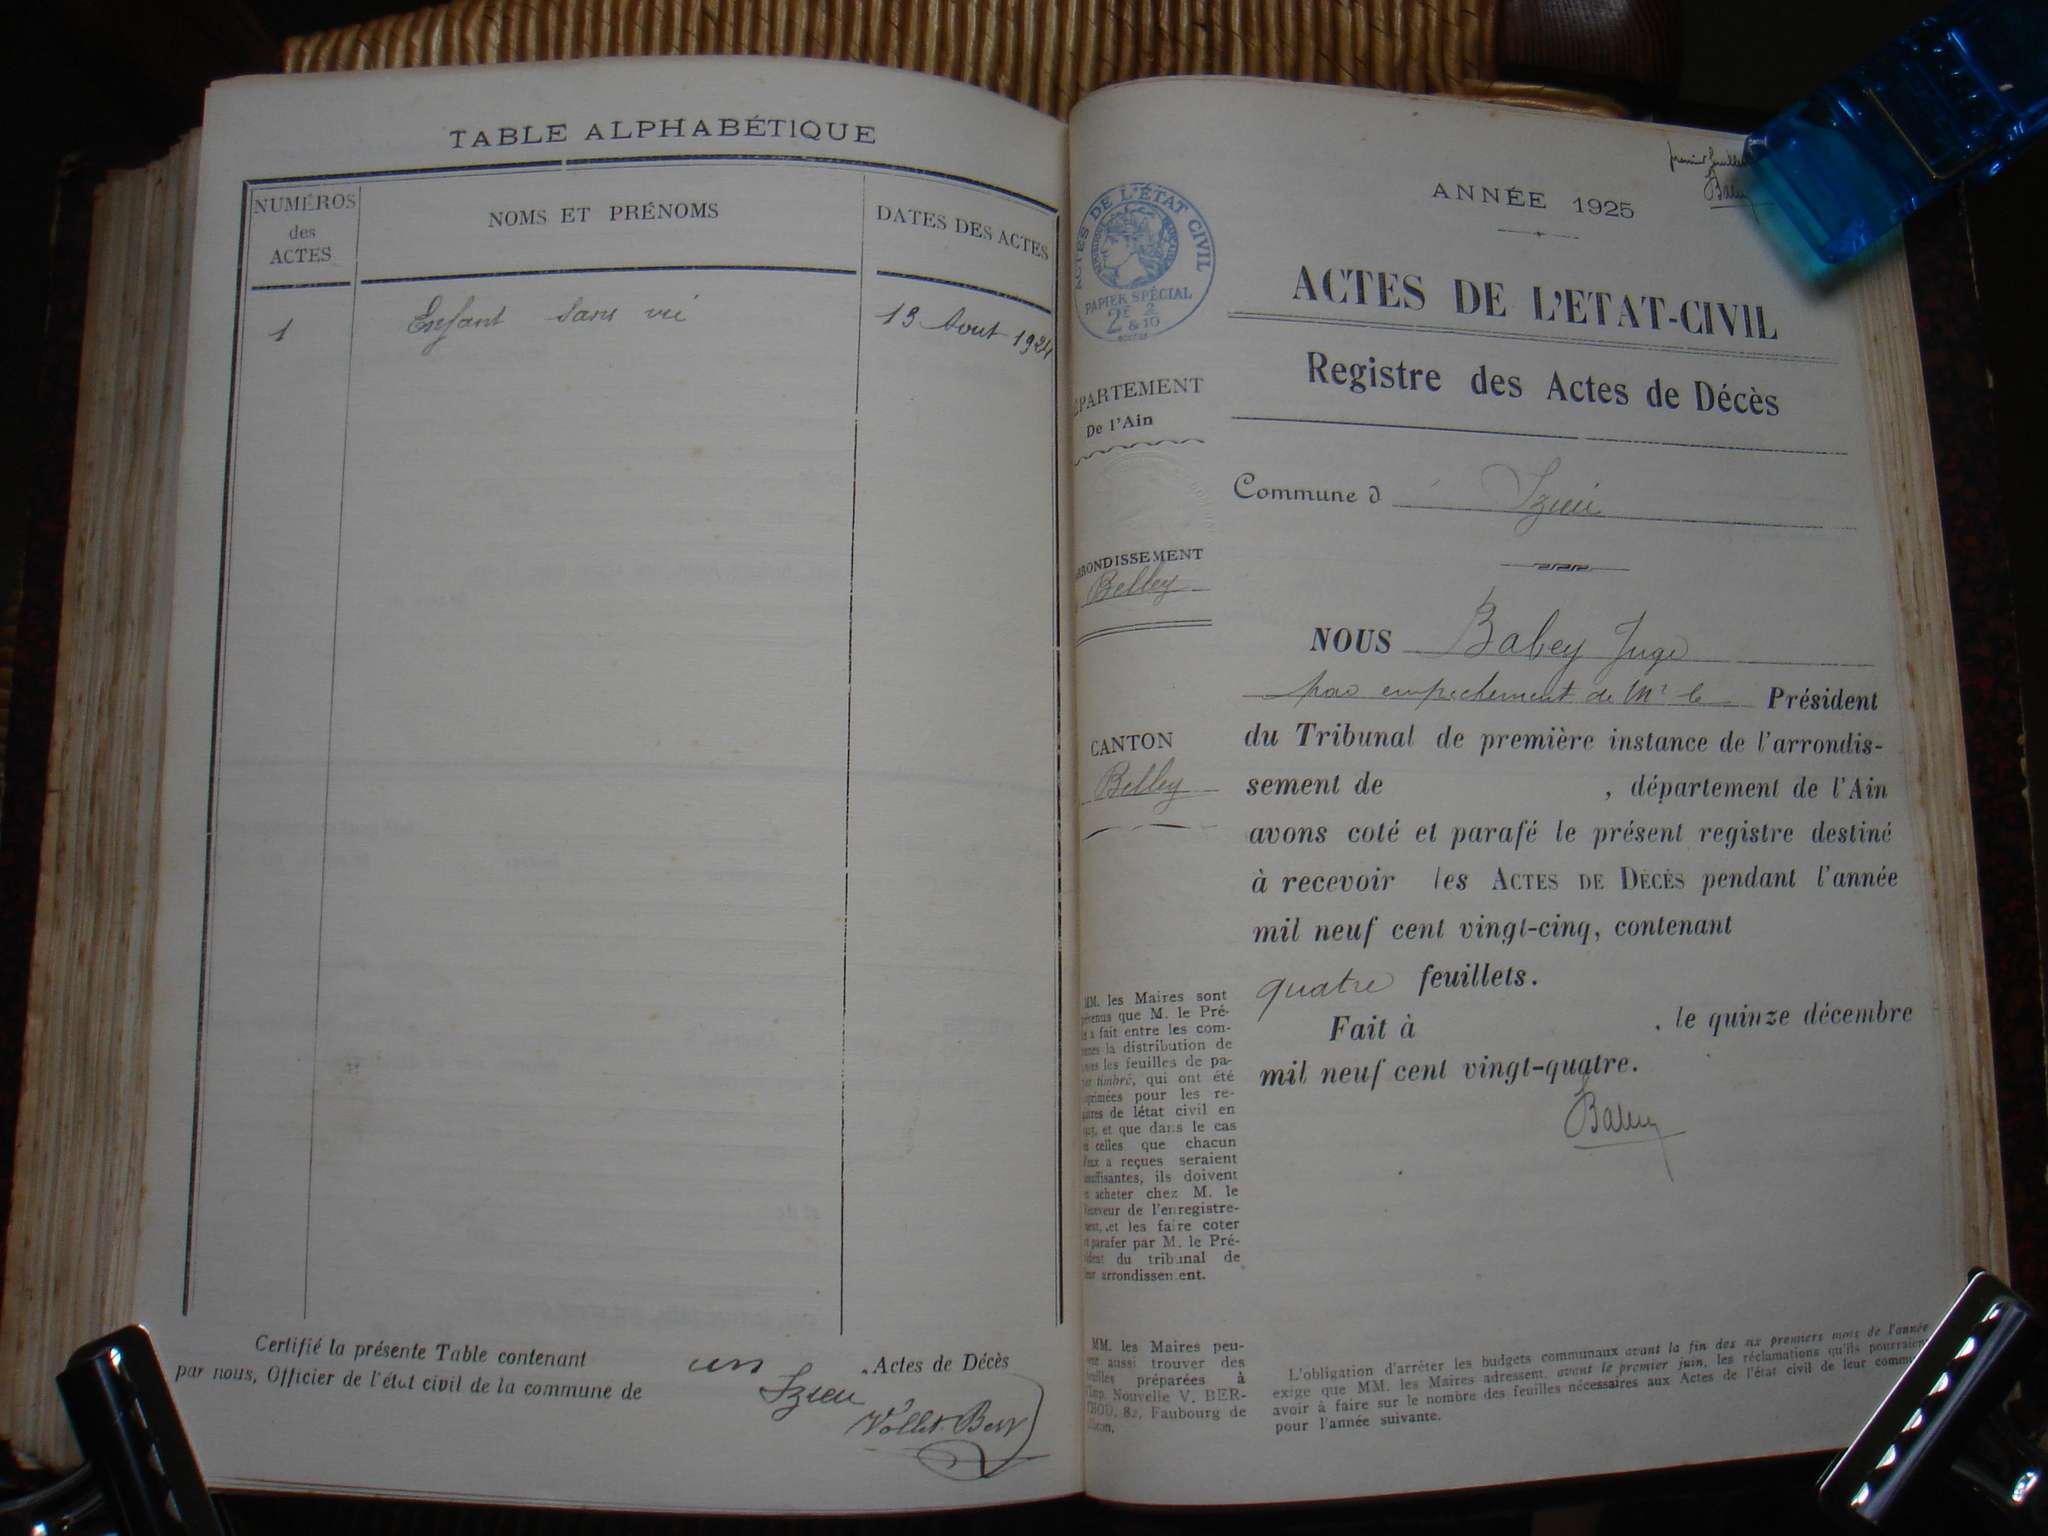 TABLE ALPHABÉTIQUE
NUMÉROS
des
ACTES
NOMS ET PRÉNOMS
DATES DES ACTES
1
Enfant sans vie
13 Aout 1924
Certifié la présente Table contenant un Actes de Décès
par nous, Officier de l'état civil de la commune de Izieu
Vollet-Ber
premier feuillet
Babey
ANNÉE 1925
ACTES DE L'ÉTAT CIVIL
PAPIER SPÉCIAL
2F 2/10
&
ACTES DE L'ETAT-CIVIL
Registre des Actes de Décès
PARTEMENT
De l'Ain
Commune d Izieu
RONDISSEMENT
Belley
CANTON
Belley
NOUS Babey Juge
par empêchement de Mr le Président
du Tribunal de première instance de l'arrondis-
sement de , département de l'Ain
avons coté et parafé le présent registre destiné
à recevoir les ACTES DE DÉCÈS pendant l'année
mil neuf cent vingt-cinq, contenant
quatre feuillets.
Fait à , le quinze décembre
mil neuf cent vingt-quatre.
Babey
MM. les Maires sont
que M. le Pré-
a fait entre les com-
la distribution de
les feuilles de pa-
timbré, qui ont été
pour les re-
de létat civil en
et que dans le cas
celles que chacun
a reçues seraient
ils doivent
acheter chez M. le
de l'enregistre-
et les faire coter
parafer par M. le Pré-
du tribunal de
arrondissement.
MM. les Maires peu-
aussi trouver des
préparées à
Nouvelle V. BER-
82, Faubourg de
L'obligation d'arrêter les budgets communaux avant la fin des six premiers mois de l'année
exige que MM. les Maires adressent, avant le premier juin, les réclamations qu'ils pourraient
avoir à faire sur le nombre des feuilles nécessaires aux Actes de l'état civil de leur commune
pour l'année suivante.